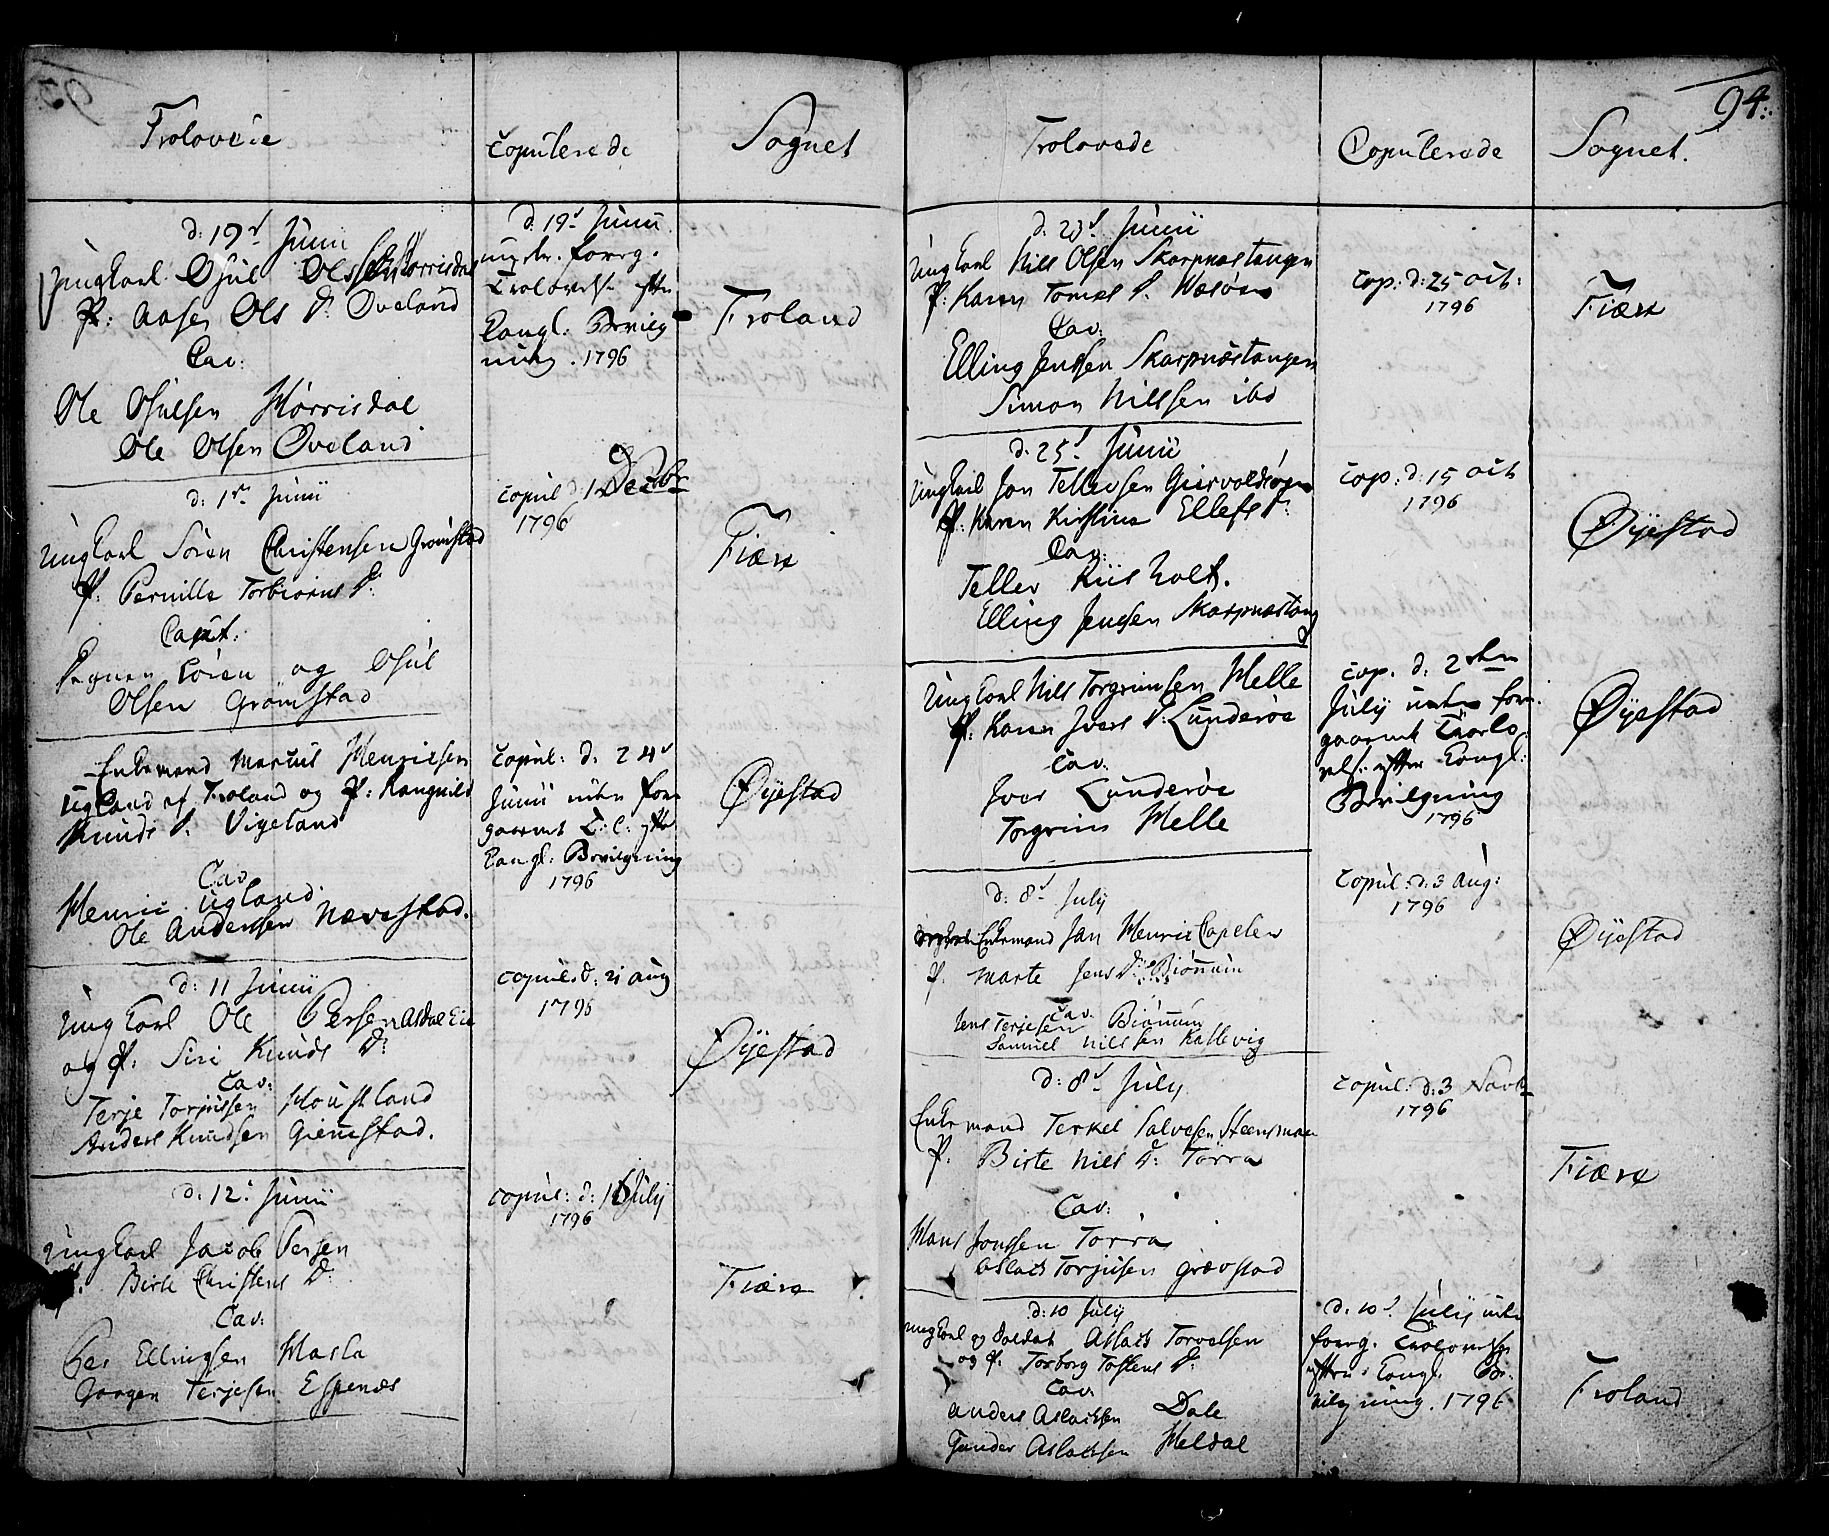 Trolovede
Copulerede
Sognet
d: 19de Junii
Ungkarl Osul Olssen Mørrisdal
P: Aasen Ols D. Oveland
Cav:
Ole Osulsen Mørrisdal
Ole Olsen Øveland
d: 19de Junii
uden foreg.
Trolovelse efter
Cangl: Bevilg
ning. 1796
Froland
d: 1ste Junii
Ungkarl Søren Christensen Grømstad
P: Pernille Torbiørns D:
Caut:
Søren og Osul
Olsen Grømstad
copul d: 1 Decbr
1796
Fiære
Enkemand Marcus Henricsen
Ugland af Froland og P: Rangnild
Knuds D. Vigeland
Cav
Henric Ugland
Ole Anderssen Nævestad.
Copul: d: 24de
Junii uden fore
gaaend T: l: efter
Cangl: Bevilgning
1796
Øyestad
d: 11 Junii
Ungkarl Ole Persen Asdal Eie
og P: Siri Knuds D:
Cav:
Terje Torjussen Mouskland
Anders Knudsen Giennestad.
copul. d: 21 aug
1796
Øyestad
d: 12. Junii
Ungkarl Jacob Persen
P. Birte Christens D:
Cav:
Per Ellingsen Hasla
Jørgen Terjesen Espenæs
copul: d: 16 July
1796
Fiære
94.
Trolovede
Copulerede
Sognet.
d. 23de Junii
Ungkarl Nils Olsen Skarpnæstangen
P: Karen Tomes D. Hæsøen
Cav:
Elling Jenssen Skarpnæstangen
Simon Nilssen ibd
cop: d: 25 oct:
1796
Fiære
d. 25de Junii
Ungkarl Jon Tellefsen Giervoldsøen
P: Karen Kirstine Ellefs D:
Cav:
Tellev Kiisholt.
Elling Jenssen Skarpnæstang
cop: d: 15 oct
1796
Øyestad
Ungkarl Nils Torgrimsen Helle
P: Karen Ivers D: Lunderøe
Cav:
Iver Lunderøe
Torgrim Helle
cop. d: 2den
July uden fore
gaaend Trolo
vels. efter Cangl:
Bevilgning
1796
Øyestad
d: 8de July
Enkemand Jan Henric Capelen
P. Marte Jens D: Biønnum
Cav.
Jens Terjesen Biønnum
Samuel Nilssen Kastevig
Copul: d: 3 Aug:
1796
Øyestad
d: 8de July
Enkemand Terkel Salvesen Steensmoen
P. Birte Nils D: Torra
Cav:
Hans Jonssen Torra
Aslach Torjusen Grævstad
copul: d: 3 Novbr
1796
Fiære
d: 10 July
Ungkarl og Soldat Aslach Torvelsen
og P. Torborg Tostens D:
Cav
Anders Aslachsen Dale
Gunder Aslachsen Heldal
d: 10de July uden
foreg: Trolovelse
efter Cangl. Be
vilgning. 1796
Froland